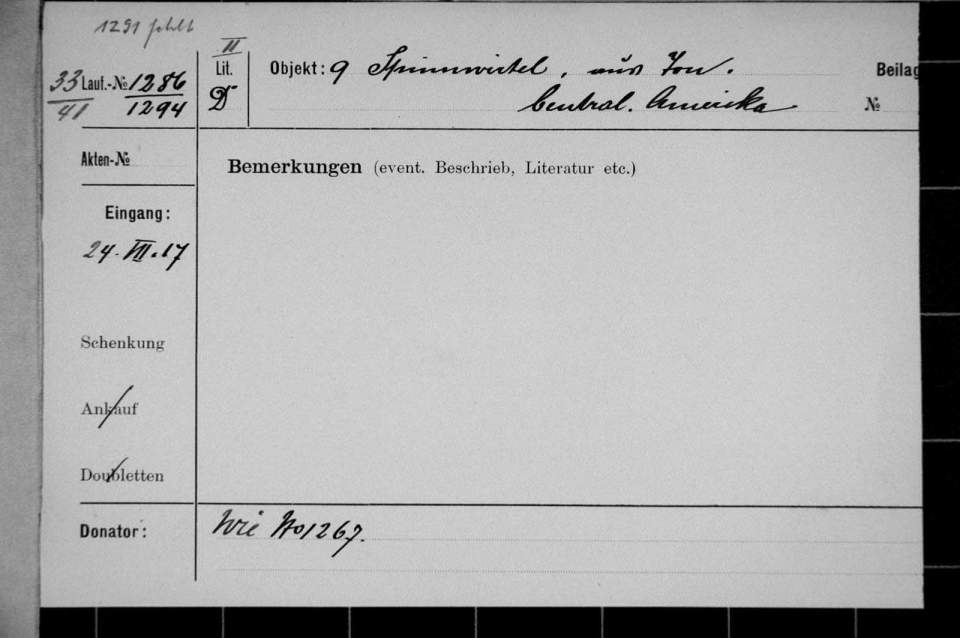 1291 fehlt
33/41 Lauf.-№ 1286/1294
II
Lit.
D
Objekt: 9 Spinnwirtel, aus Ton.
Central. Amerika
Beilag
№
Akten-№
Bemerkungen (event. Beschrieb, Literatur etc.)
Eingang:
24. VII. 17
Schenkung
Ankauf
Doubletten
Donator: Wie No 1267.